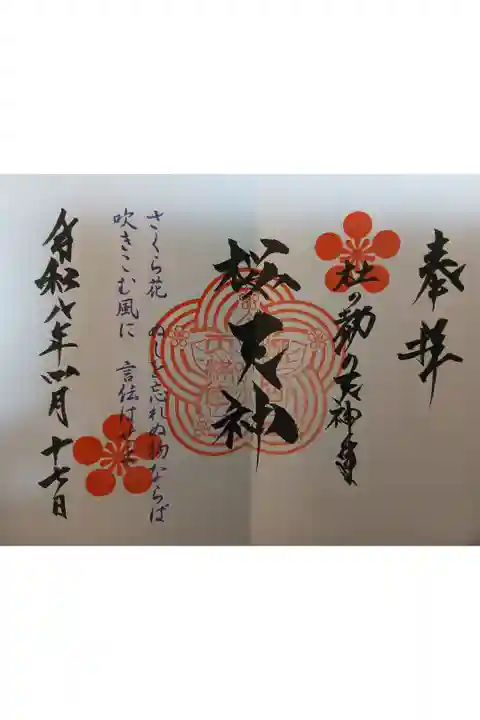 奉拝
杜の勤の天神幸
桜天神
さくら花 ぬしを忘れぬ物ならば
吹きこむ風に 言伝はせよ
令和八年四月十七日